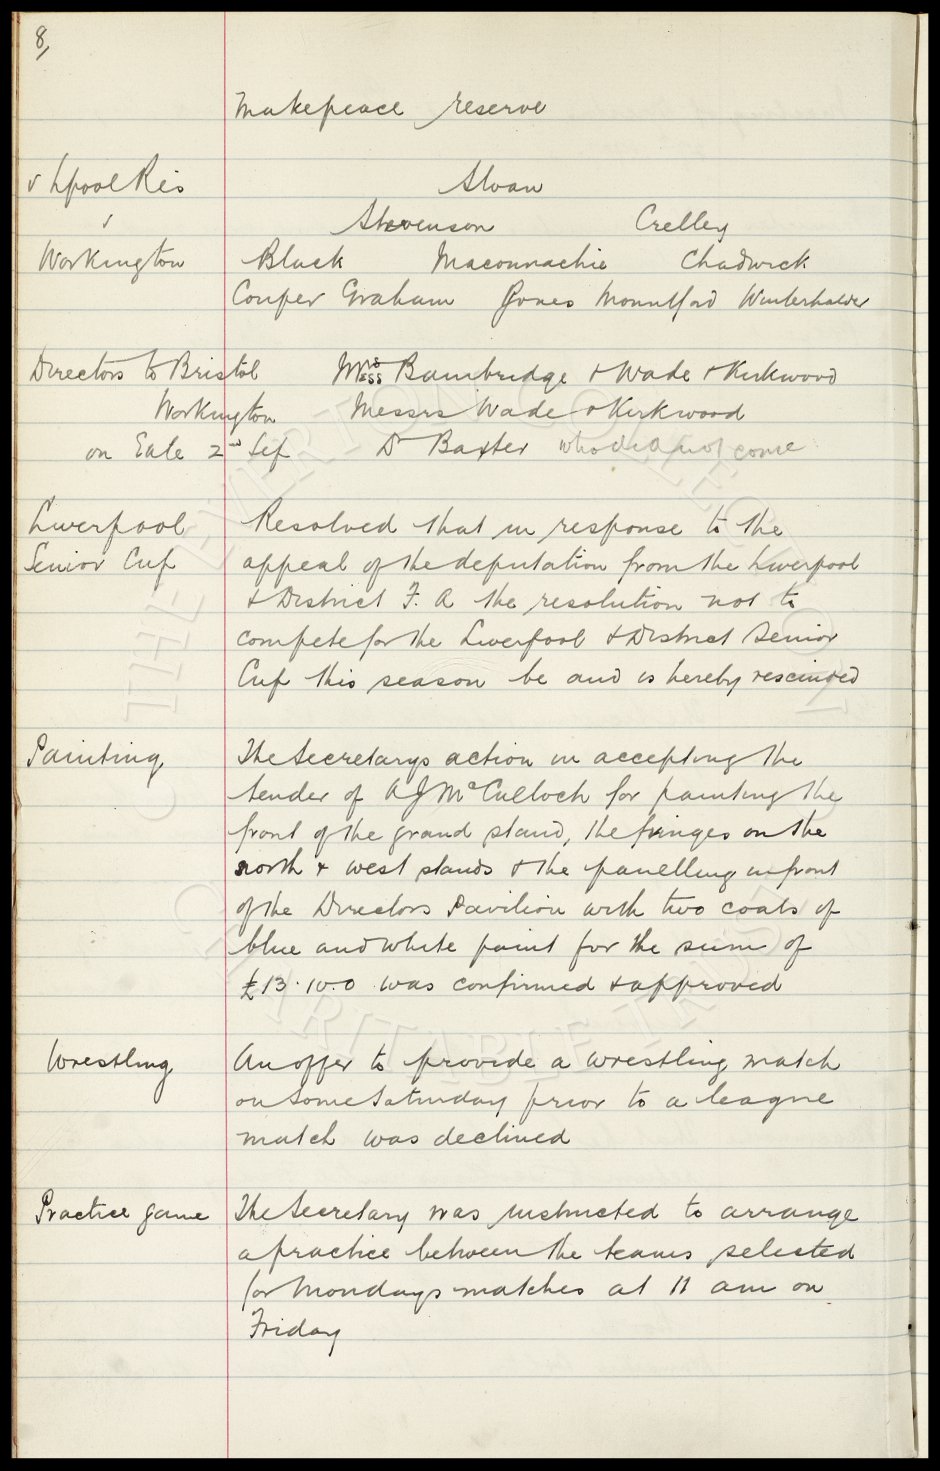 8,
Makepeace reserve
v Lpool Res Sloan
v Stevenson Crelley
Workington Black Maconnachie Chadwick
Couper Graham Jones Mountford Winterhalder
Directors to Bristol Messrs Bainbridge + Wade + Kirkwood
Workington Messrs Wade + Kirkwood
on Eale 2nd Sep Dr Baxter who did not come
Liverpool Resolved that in response to the
Senior Cup appeal of the deputation from the Liverpool
+ District F. A the resolution not to
compete for the Liverpool + District Senior
Cup this season be and is hereby rescinded
Painting The Secretarys action in accepting the
tender of A J McCulloch for painting the
front of the grand stand, the fringes on the
north + west stands + the panelling in front
of the Directors Pavilion with two coats of
blue and white paint for the sum of
£13.10.0 was confirmed + approved
Wrestling An offer to provide a wrestling match
on some Saturday prior to a league
match was declined
Practice game The Secretary was instructed to arrange
a practice between the teams selected
for Mondays matches at 11 am on
Friday
THE EVERTON COLLECTION
CHARITABLE TRUST